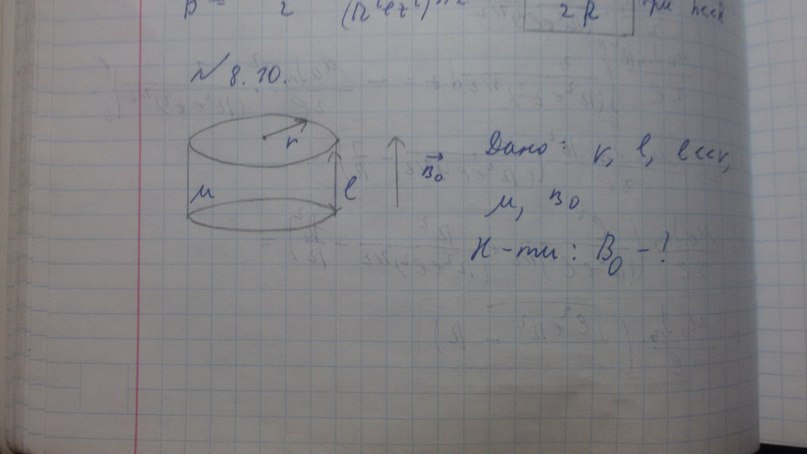 2R при
№ 8.10.
r
μ
l
B₀
Дано: r, l, l<<r,
μ, B₀
Н-ти: B₀ - ?